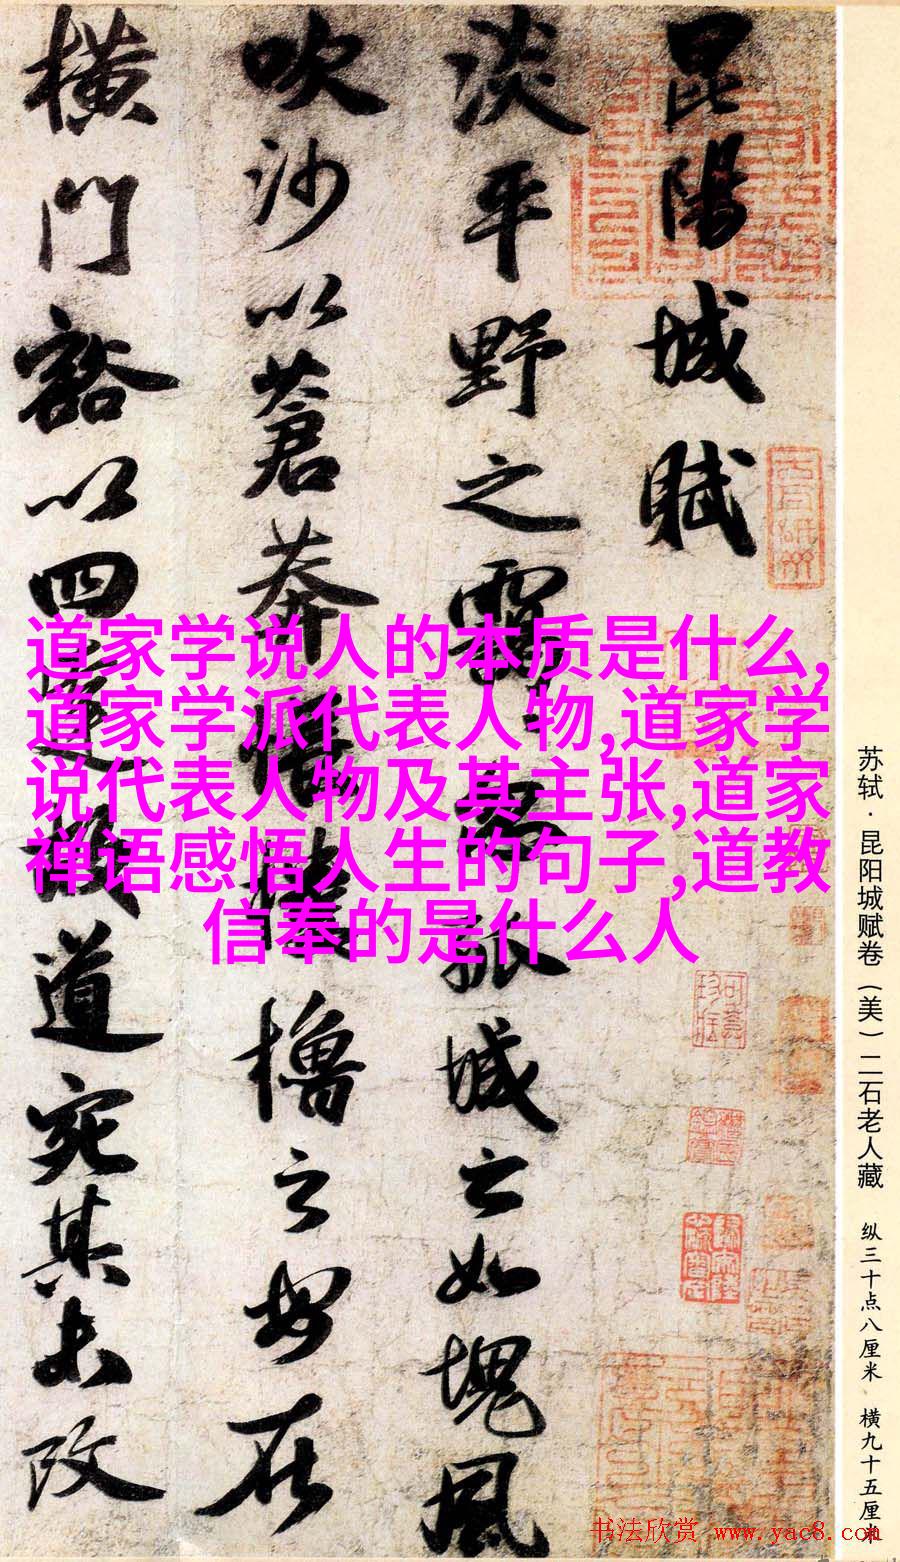 昆陽城賦
淡平野之靄忽孤城之如塊風
吹沙以蒼莽悵樓櫓之安在
横門豁以四達故道宛其未改
道家学说人的本质是什么,
道家学派代表人物,道家学
说代表人物及其主张,道家
禅语感悟人生的句子,道教
信奉的是什么人
苏轼·昆阳城赋卷（美）二石老人藏 纵三十点八厘米 横九十五厘米
书法欣赏 www.yac8.com